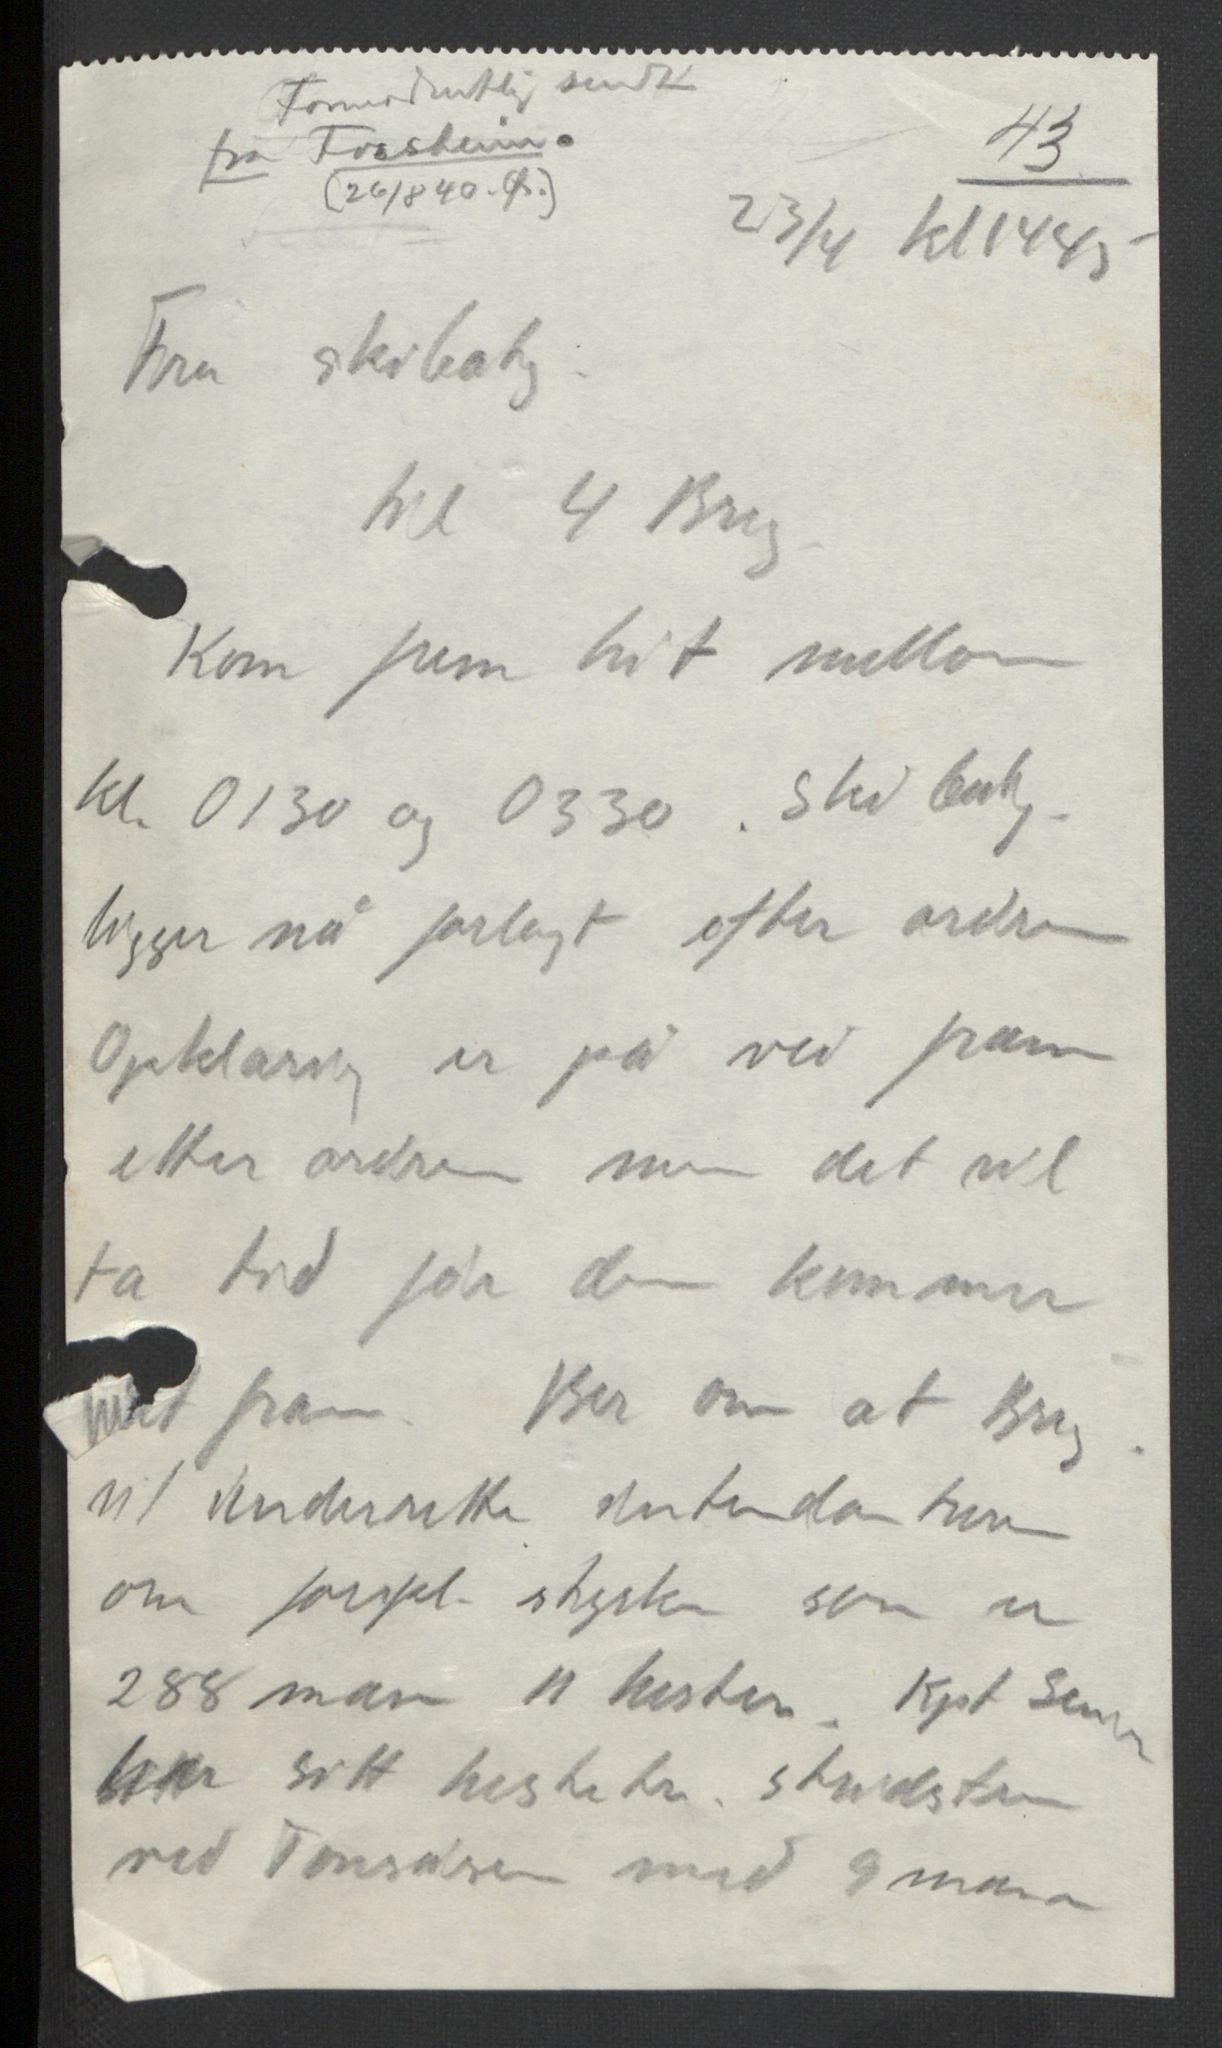 Formodentlig sendt
fra Fossheim.
(26/8 40. Ø.)
43
23/4 kl 1445
Fra skibatg.
til 4 Brig.
Kom frem hit mellom
kl. 0130 og 0330. Skibatg.
ligger nå forlagt efter ordren
Opklaring er på vei fram
etter ordren men det vil
ta tid før den kommer
fram. Ber om at Brig.
vil underrette intendanturen
om forpl. styrken som er
288 mann 11 hester. Kpt
har sitt hestetr. standsten
ved Tonsåsen med 9 mann